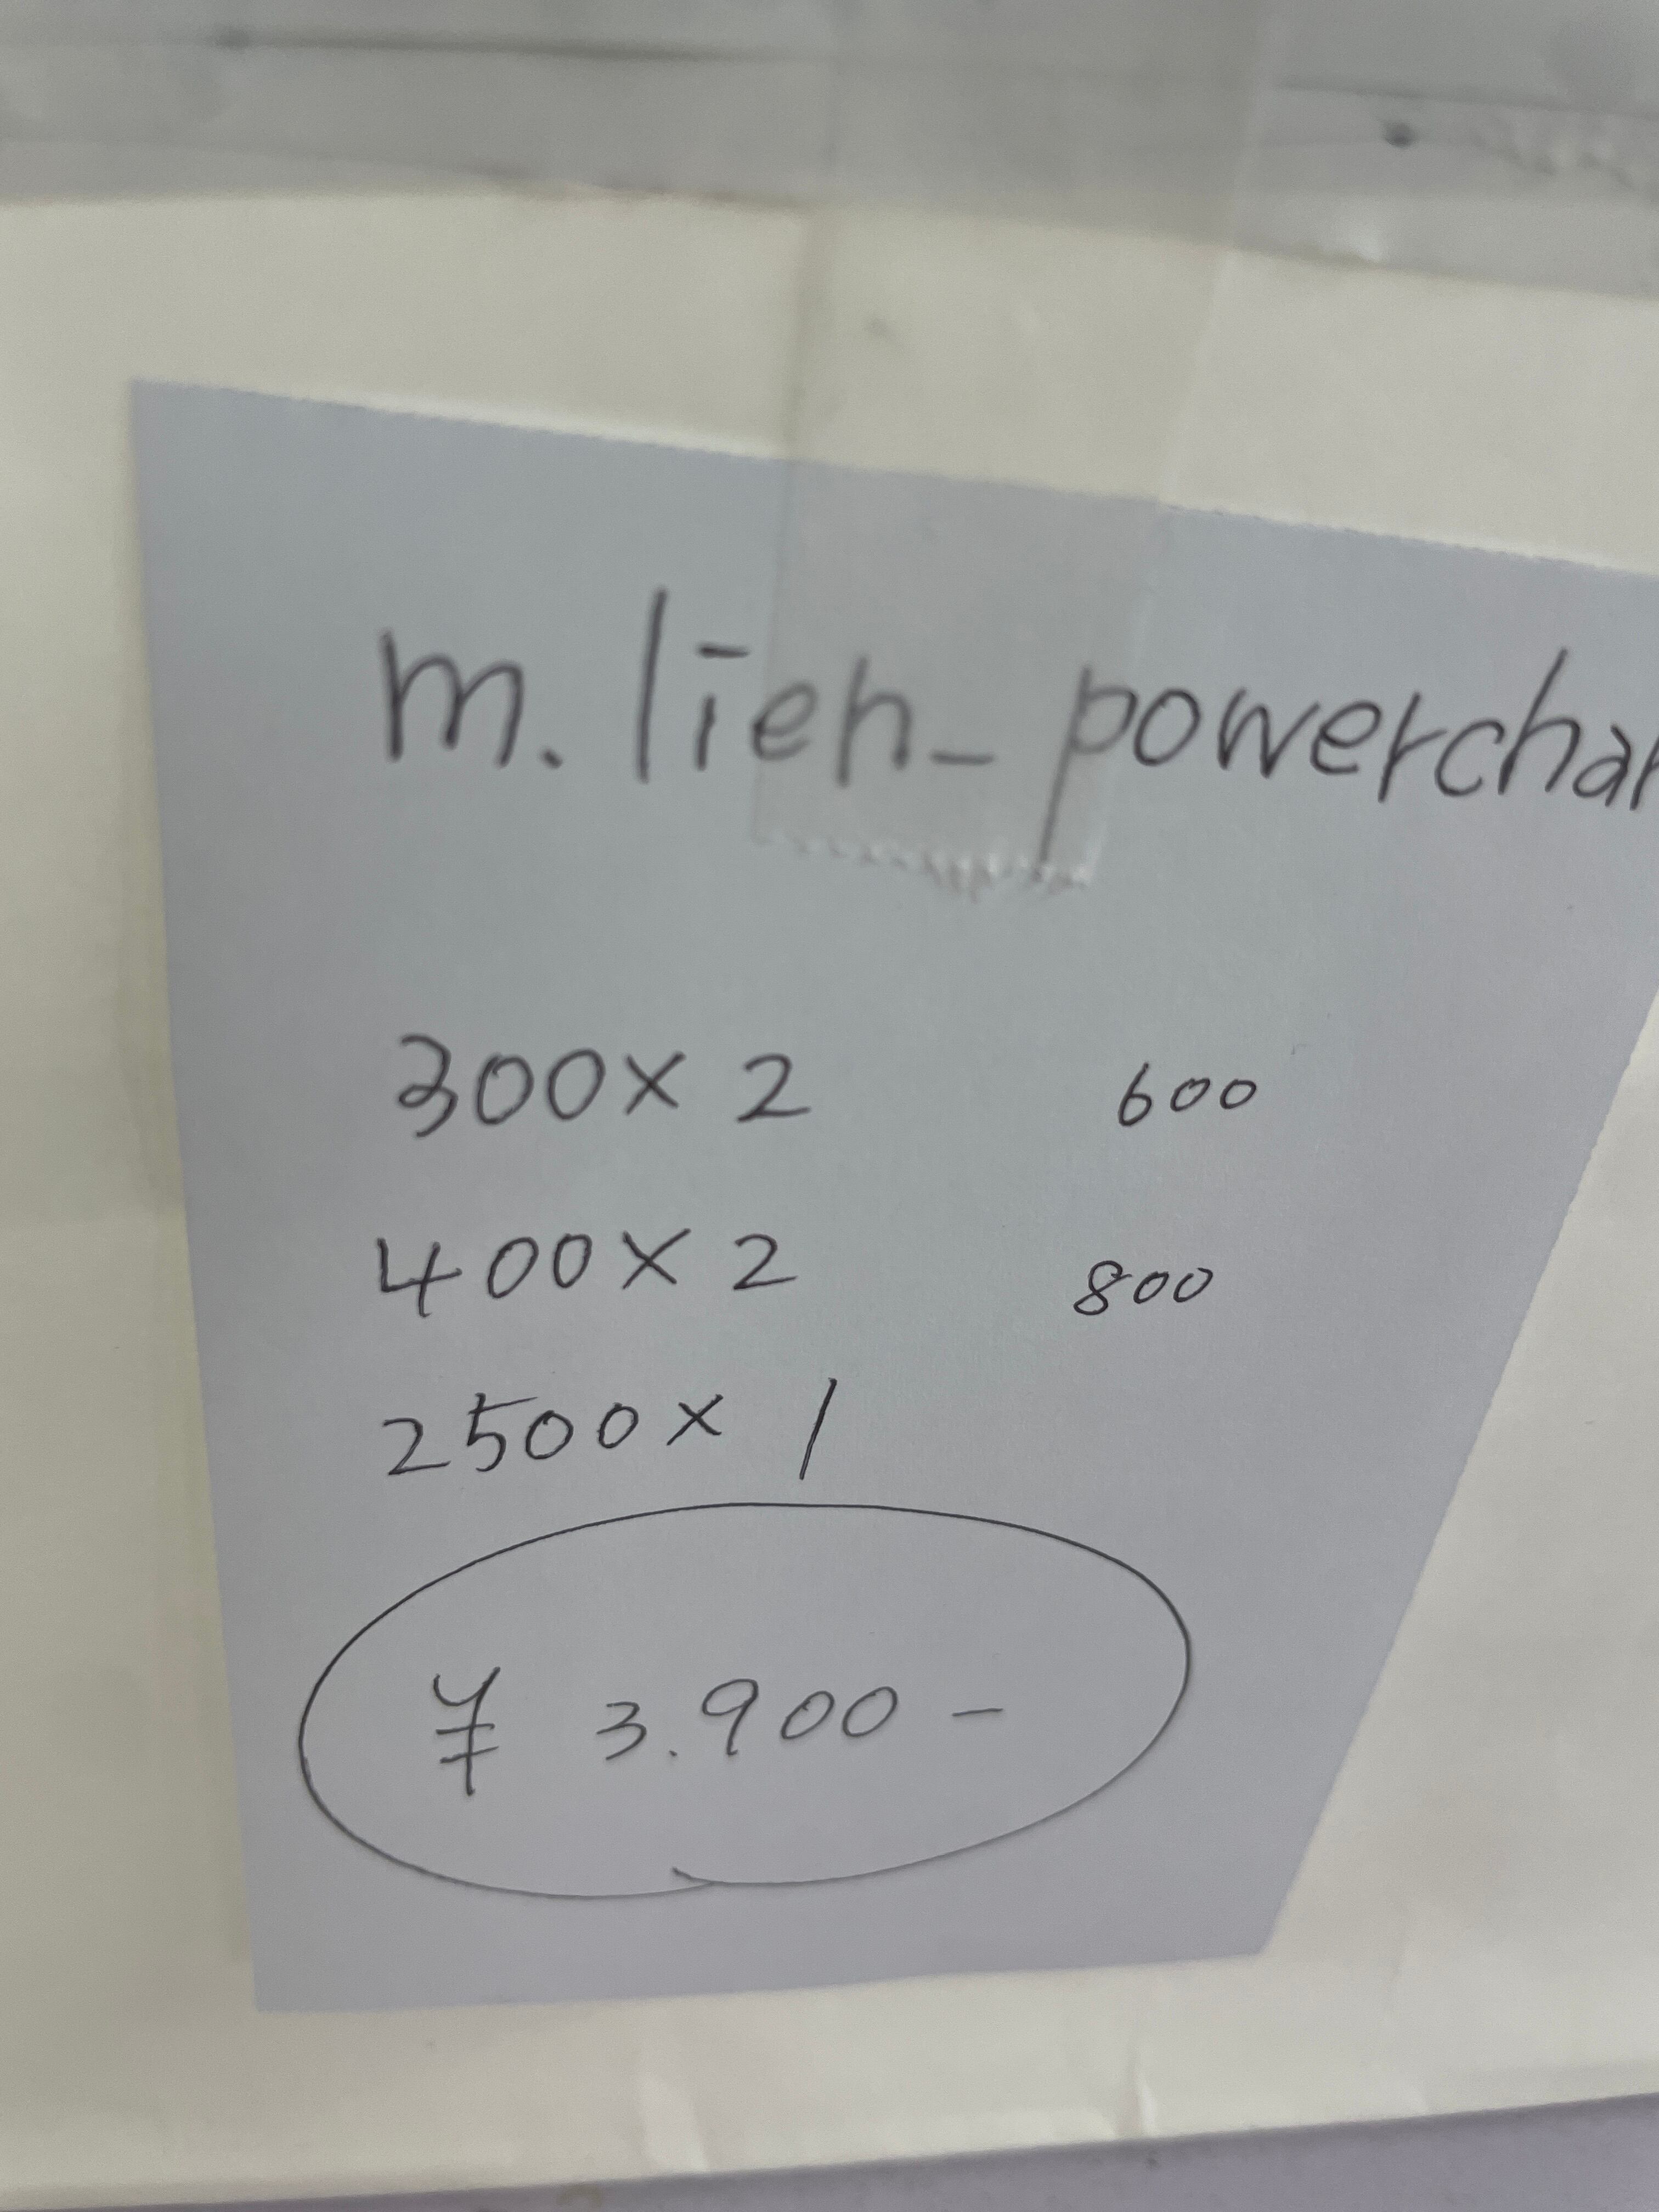 m.lieh_powerchar
300×2 600
400×2 800
2500×1
¥ 3.900-